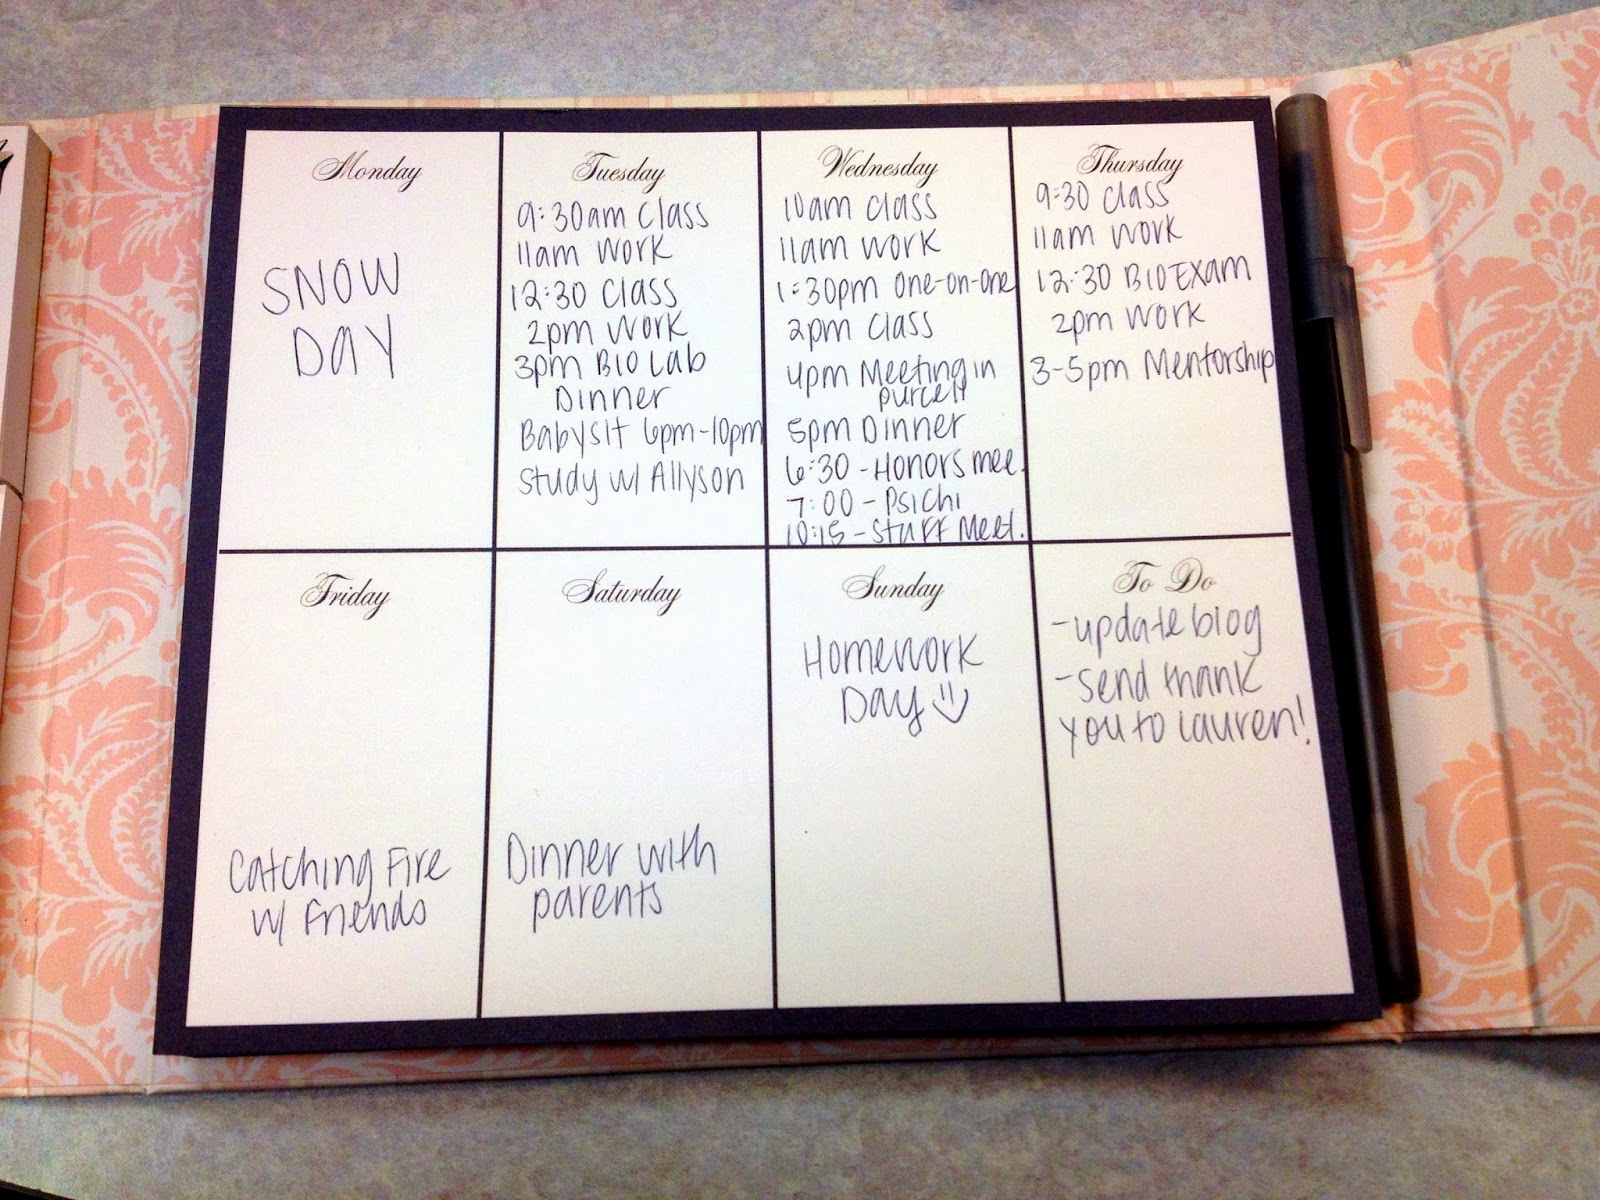 Monday
SNOW
DAY
Tuesday
9:30am Class
11am Work
12:30 Class
2pm Work
3pm BIO Lab
Dinner
Babysit 6pm-10pm
Study w/ Allyson
Wednesday
10am Class
11am Work
1:30pm One-on-One
2pm Class
4pm Meeting in
Purcell
5pm Dinner
6:30 - Honors mee.
7:00 - PsiChi
10:15 - Staff Meet.
Thursday
9:30 Class
11am Work
12:30 BIO Exam
2pm Work
3-5pm Mentorship
Friday
Catching Fire
w/ Friends
Saturday
Dinner with
parents
Sunday
Homework
Day
To Do
-update blog
-send thank
you to Lauren!